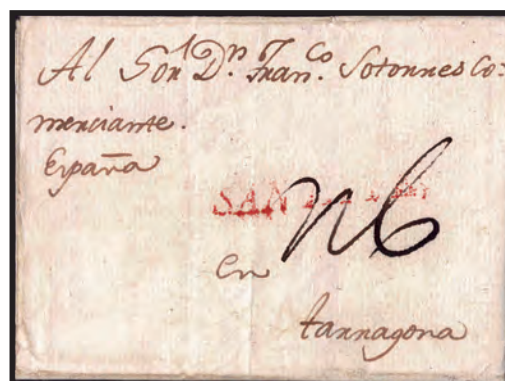 Al Sor. Dn. Franco. Sotorres Co:
merciante.
España
En
tarragona